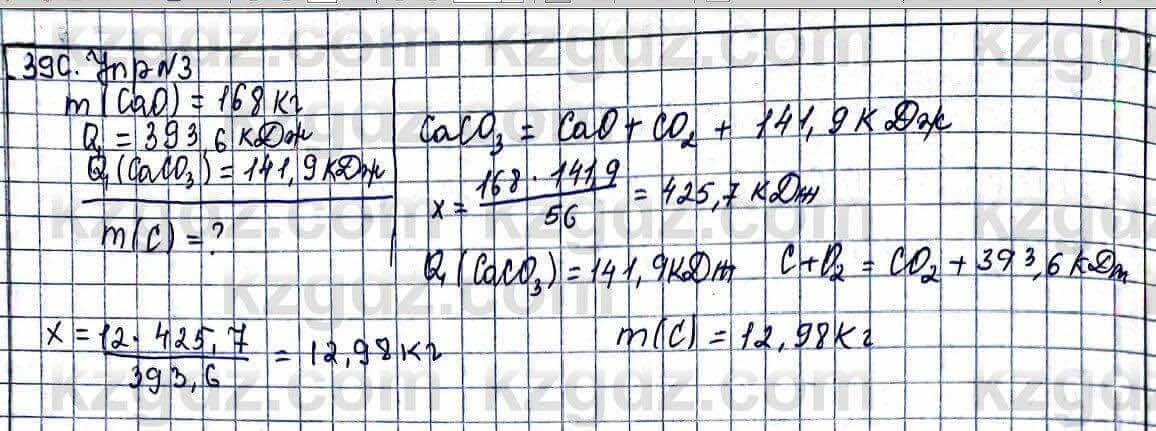 39С. Упр N3
m(CaO) = 168 кг
Q = 393,6 кДж
Q(CaCO₃) = 141,9 кДж
m(C) = ?
CaCO₃ = CaO + CO₂ + 141,9 кДж
x = 168 · 141,9 / 56 = 425,7 кДж
Q(CaCO₃) = 141,9 кДж C + O₂ = CO₂ + 393,6 кДж
x = 12 · 425,7 / 393,6 = 12,98 кг
m(C) = 12,98 кг
kzgdz.com